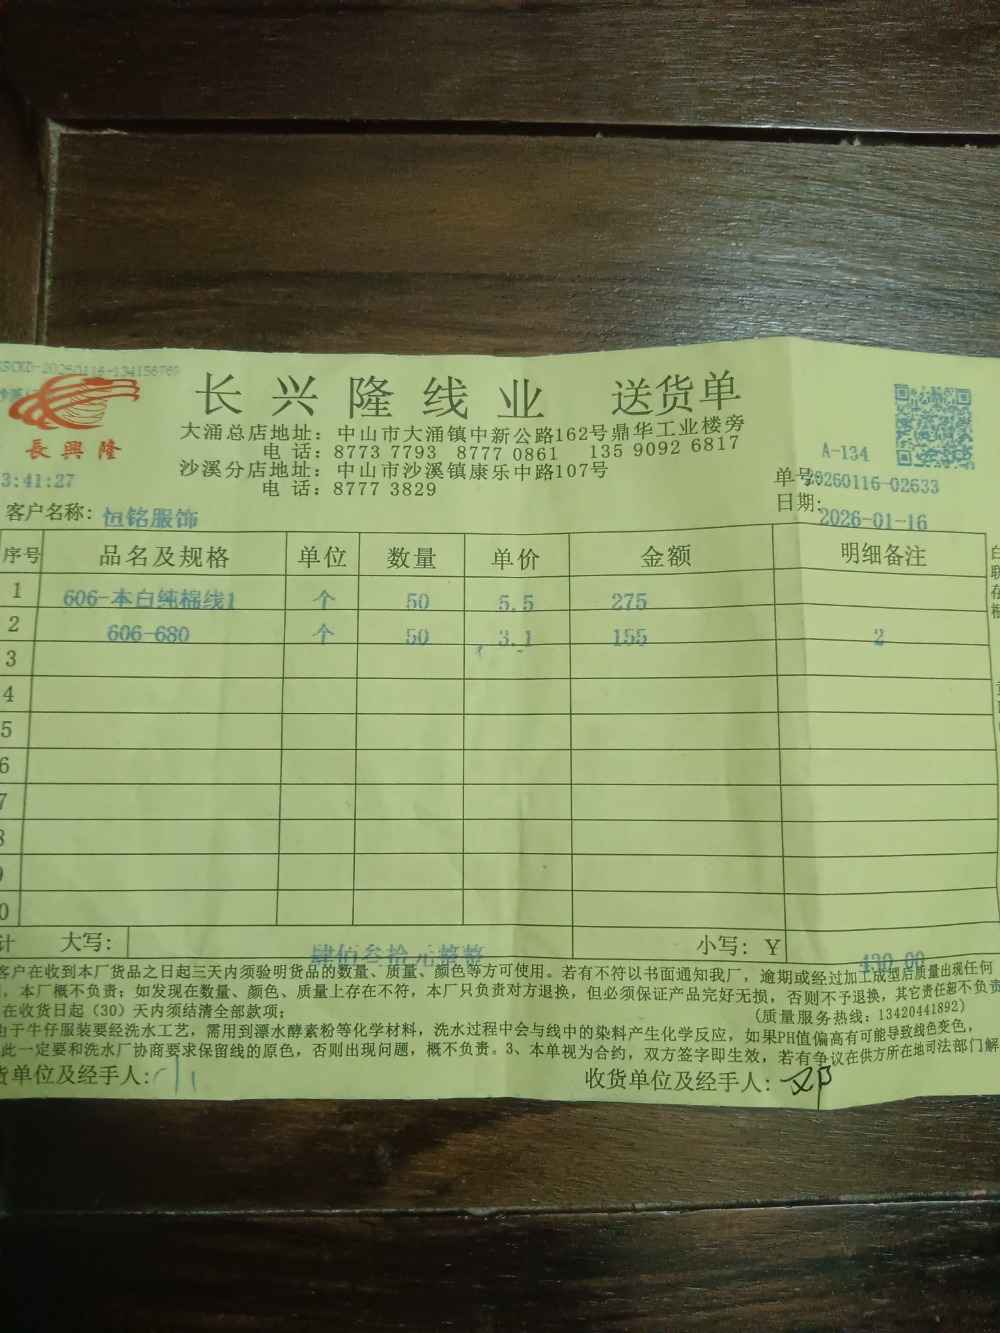 XSCKD-20260116-134156769
長興隆
长兴隆线业 送货单
大涌总店地址：中山市大涌镇中新公路162号鼎华工业楼旁
电 话：8773 7793 8777 0861 135 9092 6817
沙溪分店地址：中山市沙溪镇康乐中路107号
电 话：8777 3829
A-134
3:41:27
单号20260116-02633
日期:2026-01-16
客户名称: 恒铭服饰
序号 品名及规格 单位 数量 单价 金额 明细备注
1 606-本白纯棉线1 个 50 5.5 275
2 606-680 个 50 3.1 155 2
3
4
5
6
7
8
9
0
计 大写: 肆佰叁拾元整整 小写: Y 430.00
客户在收到本厂货品之日起三天内须验明货品的数量、质量、颜色等方可使用。若有不符以书面通知我厂，逾期或经过加工成型后质量出现任何
，本厂概不负责；如发现在数量、颜色、质量上存在不符，本厂只负责对方退换，但必须保证产品完好无损，否则不予退换，其它责任恕不负责
在收货日起（30）天内须结清全部款项；
(质量服务热线: 13420441892)
由于牛仔服装要经洗水工艺，需用到漂水酵素粉等化学材料，洗水过程中会与线中的染料产生化学反应，如果PH值偏高有可能导致线色变色，
此一定要和洗水厂协商要求保留线的原色，否则出现问题，概不负责。3、本单视为合约，双方签字即生效，若有争议在供方所在地司法部门解
货单位及经手人:
收货单位及经手人: